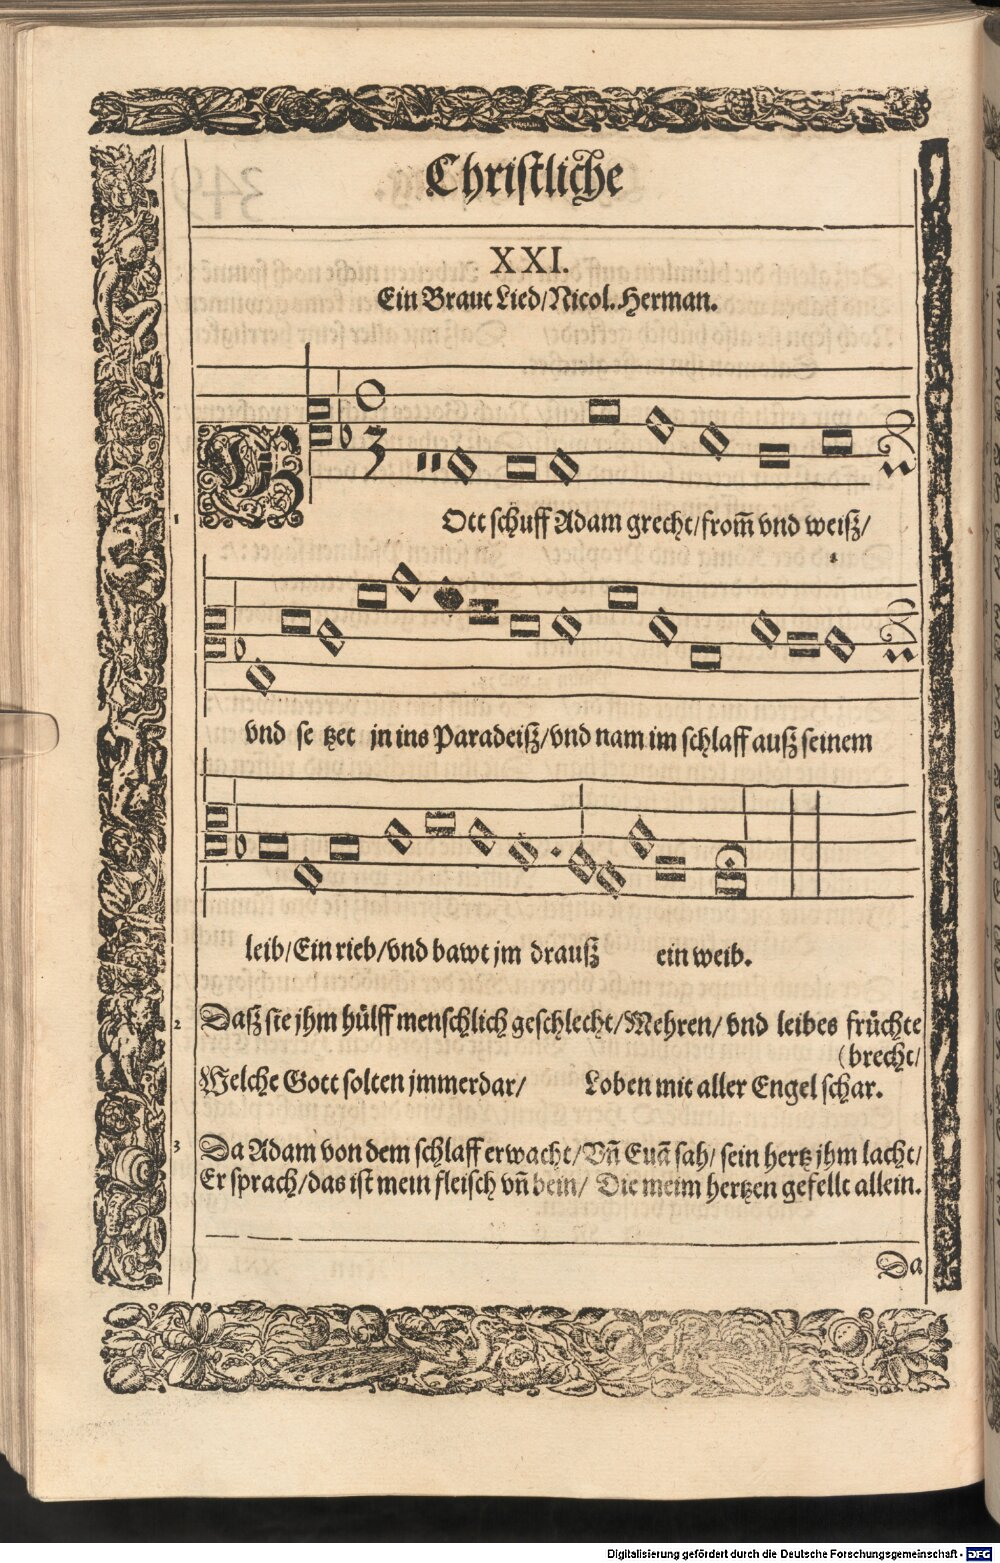 Christliche
XXI.
Ein Braut Lied/Nicol. Herman.
1 GOtt schuff Adam grecht/from̃ vnd weiß/
vnd se tzet jn ins Paradeiß/vnd nam im schlaff auß seinem
leib/Ein rieb/vnd bawt jm drauß ein weib.
2 Daß sie jhm hülff menschlich geschlecht/Mehren/ vnd leibes früchte
(brecht/
Welche Gott solten jmmerdar/ Loben mit aller Engel schar.
3 Da Adam von dem schlaff erwacht/Vñ Euã sah/ sein hertz jhm lacht/
Er sprach/das ist mein fleisch vñ bein/ Die meim hertzen gefellt allein.
Da
Digitalisierung gefördert durch die Deutsche Forschungsgemeinschaft - DFG